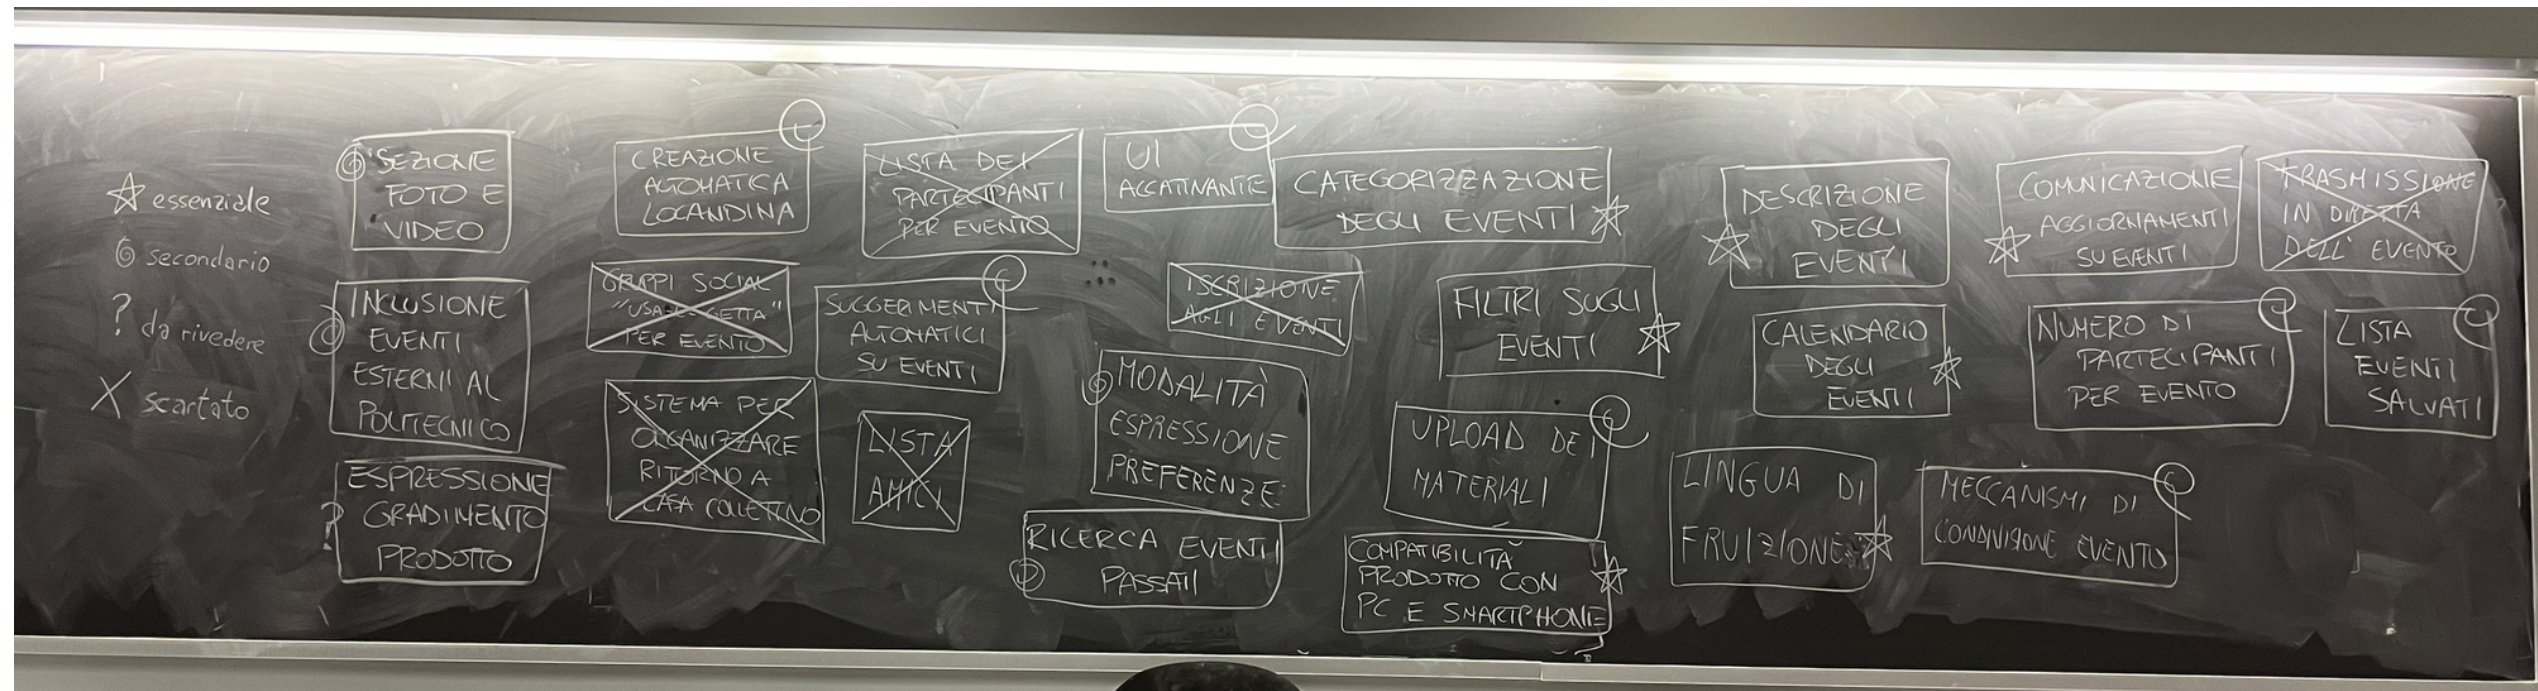 essenziale
secondario
? da rivedere
X scartato
SEZIONE
FOTO E
VIDEO
INCLUSIONE
EVENTI
ESTERNI AL
POLITECNICO
ESPRESSIONE
? GRADIMENTO
PRODOTTO
CREAZIONE
AUTOMATICA
LOCANDINA
GRUPPI SOCIAL
"USA E GETTA"
PER EVENTO
SISTEMA PER
ORGANIZZARE
RITORNO A
CASA COLLETTIVO
LISTA DEI
PARTECIPANTI
PER EVENTO
SUGGERIMENTI
AUTOMATICI
SU EVENTI
LISTA
AMICI
UI
ACCATTIVANTE
CATEGORIZZAZIONE
DEGLI EVENTI
ISCRIZIONE
AGLI EVENTI
MODALITÀ
ESPRESSIONE
PREFERENZE
RICERCA EVENTI
PASSATI
FILTRI SUGLI
EVENTI
UPLOAD DEI
MATERIALI
COMPATIBILITÀ
PRODOTTO CON
PC E SMARTPHONE
DESCRIZIONE
DEGLI
EVENTI
CALENDARIO
DEGLI
EVENTI
LINGUA DI
FRUIZIONE
COMUNICAZIONE
AGGIORNAMENTI
SU EVENTI
NUMERO DI
PARTECIPANTI
PER EVENTO
MECCANISMI DI
CONDIVISIONE EVENTO
TRASMISSIONE
IN DIRETTA
DELL' EVENTO
LISTA
EVENTI
SALVATI